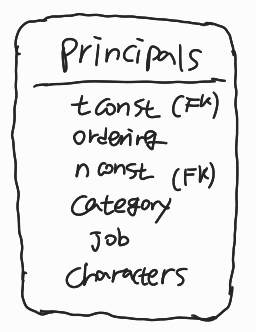 principals
tconst (FK)
ordering
nconst (FK)
category
job
characters